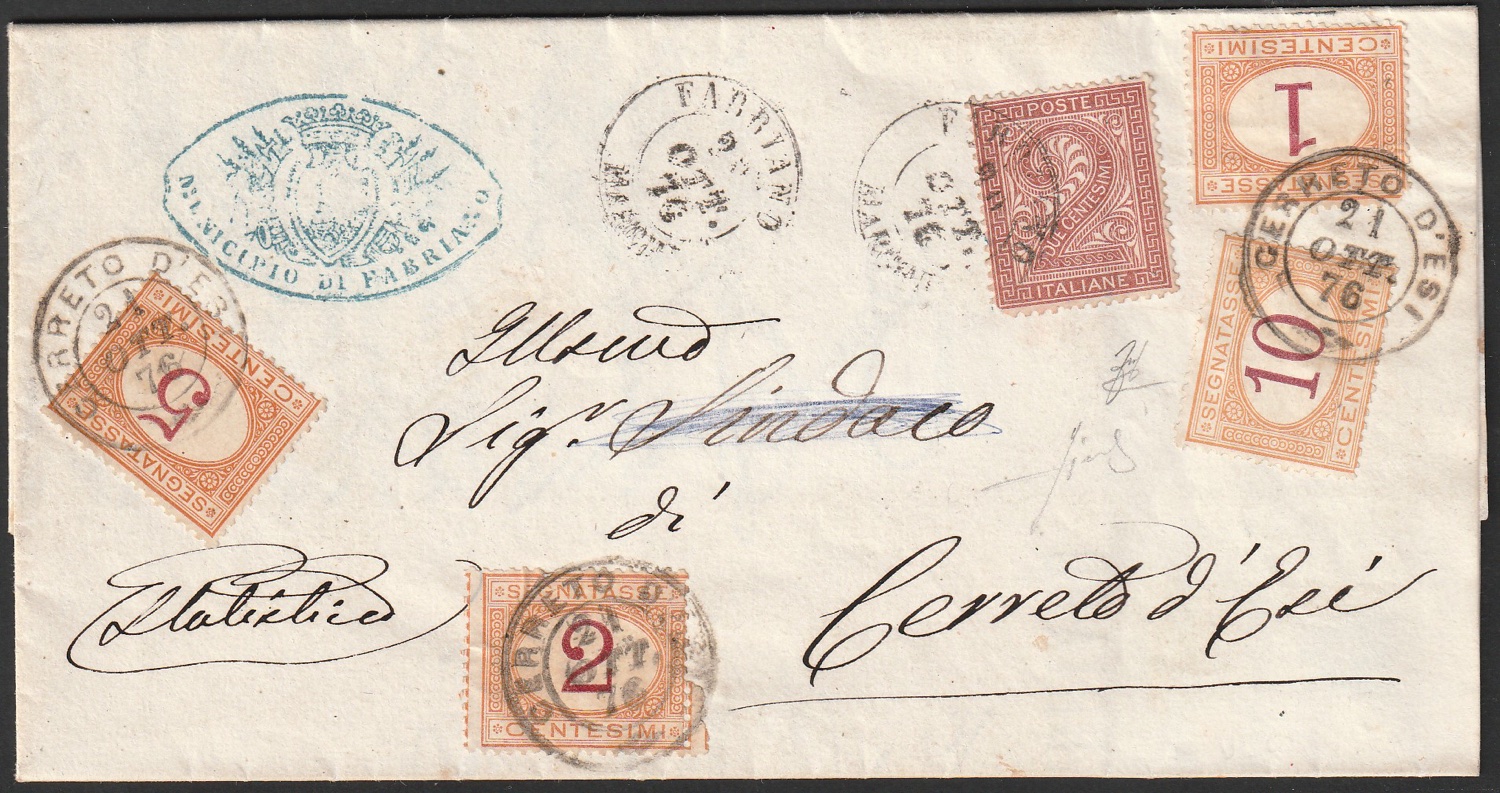 MUNICIPIO DI FABRIANO
FABRIANO
OTT.
76
OTT.
76
POSTE
2
DUE CENTESIMI
ITALIANE
CENTESIMI
1
SEGNATASSE
CERRETO D'ESI
21
OTT.
76
SEGNATASSE
10
CENTESIMI
CERRETO D'ESI
21
OTT.
76
CENTESIMI
5
SEGNATASSE
Sigr Sindaco
di
Cerreto d'Esi
Statistica
SEGNATASSE
2
CENTESIMI
CERRETO D'
21
OTT.
76